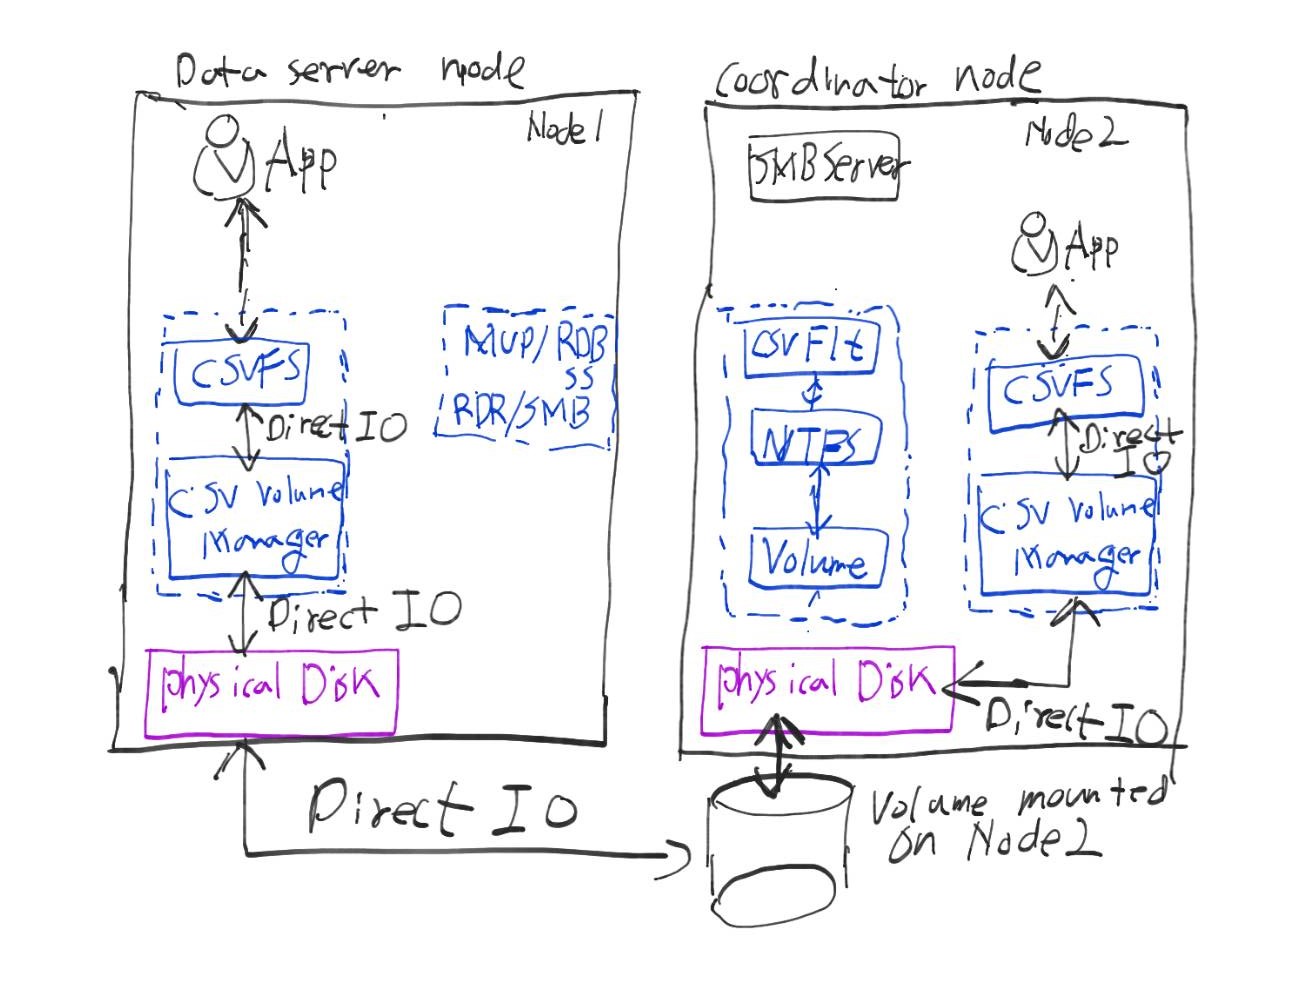 Data server node
Node1
App
CSVFS
Direct IO
CSV Volume
Manager
Direct IO
physical Disk
MUP/RDB
SS
RDR/SMB
Direct IO
Coordinator node
Node2
SMBServer
App
CSVFlt
NTFS
Volume
CSVFS
Direct
IO
CSV Volume
Manager
physical Disk
Direct IO
Volume mounted
on Node2